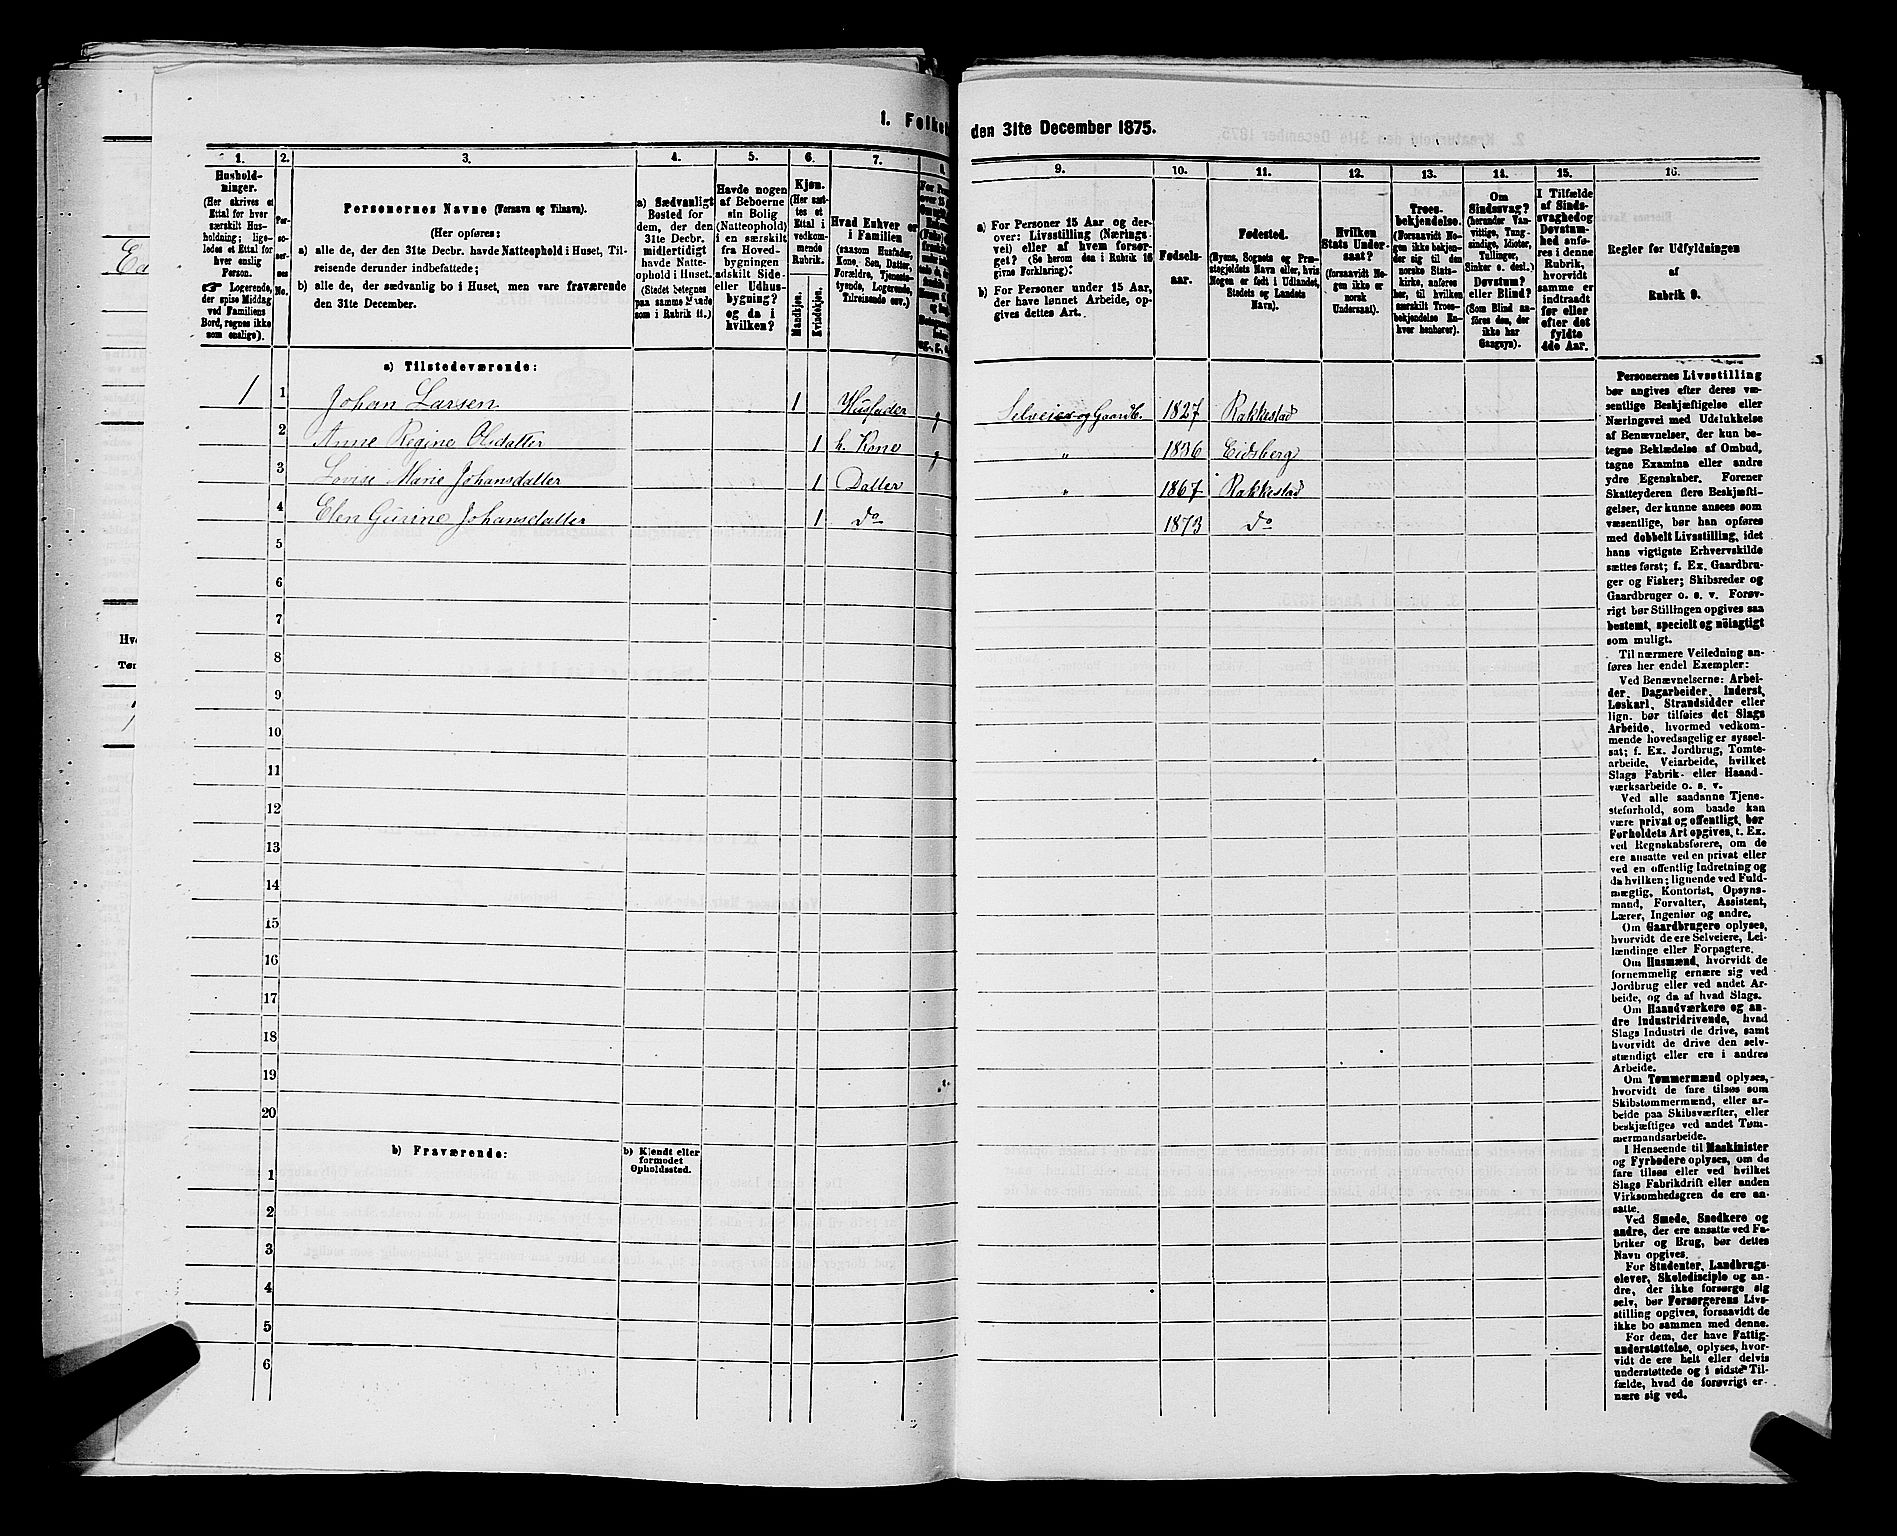 1. Folket
den 31te December 1875.
1. 2. 3. 4. 5. 6. 7. 8.
Hushold-
ninger.
(Her skrives et
Ettal for hver
særskilt Hus-
holdning; lige-
ledes et Ettal for
hver enslig
Person.
☛ Logerende,
der spise Middag
ved Familiens
Bord, regnes ikke
som enslige).
Per-
so-
ner-
nes
No.
Personernes Navne (Fornavn og Tilnavn).
(Her opføres:
a) alle de, der den 31te Decbr. havde Natteophold i Huset, Til-
reisende derunder indbefattede;
b) alle de, der sædvanlig bo i Huset, men vare fraværende
den 31te December.
a) Sædvanligt
Bosted for
dem, der den
31te Decbr.
midlertidigt
havde Natte-
ophold i Huset.
(Stedet betegnes
paa samme Maade
som i Rubrik 11.)
Havde nogen
af Beboerne
sin Bolig
(Natteophold)
i en særskilt
fra Hoved-
bygningen
adskilt Side-
eller Udhus-
bygning?
og da i
hvilken?
Kjøn.
(Her sæt-
tes et
Ettal i
vedkom-
mende
Rubrik.
Mandkjøn.
Kvindekjøn.
Hvad Enhver er
i Familien
(saasom Husfader,
Kone, Søn, Datter,
Forældre, Tjeneste-
tyende, Logerende,
Tilreisende osv.)
9. 10. 11. 12. 13. 14. 15. 16.
a) For Personer 15 Aar og der-
over: Livsstilling (Nærings-
vei) eller af hvem forsør-
get? (Se herom den i Rubrik 16
givne Forklaring).
b) For Personer under 15 Aar,
der have lønnet Arbeide, op-
gives dettes Art.
Fødsels-
aar.
Fødested.
(Byens, Sognets og Præ-
stegjeldets Navn eller, hvis
Nogen er født i Udlandet,
Stedets og Landets
Navn).
Hvilken
Stats Under-
saat?
(forsaavidt No-
gen ikke er
norsk
Undersaat).
Troes-
bekjendelse.
(Forsaavidt No-
gen ikke bekjen-
der sig til den
norske Stats-
kirke, anføres
her, til hvilken
særskilt Troes-
bekjendelse En-
hver henhører).
Om
Sindssvag?
(herunder Van-
vittige, Tung-
sindige, Idioter,
Tullinger,
Sinker o. desl.)
Døvstum?
eller Blind?
(Som Blind an-
føres den, der
ikke har
Gangsyn).
I Tilfælde
af Sinds-
svaghed og
Døvstum-
hed anfø-
res i denne
Rubrik,
hvorvidt
samme er
indtraadt
før eller
efter det
fyldte
4de Aar.
Regler før Udfyldningen
af
Rubrik 9.
a) Tilstedeværende:
1 1 Johan Larsen 1 Husfader g Selveier og Gaardb. 1827 Rakkestad
2 Anne Regine Olsdatter 1 h. Kone g „ 1836 Eidsberg
3 Lovise Marie Johansdatter 1 Datter „ 1867 Rakkestad
4 Elen Gurine Johansdatter 1 do 1873 do
5
6
7
8
9
10
11
12
13
14
15
16
17
18
19
20
b) Fraværende:
b) Kjendt eller
formodet
Opholdssted.
1
2
3
4
5
6
Personernes Livsstilling
bør angives efter deres væ-
sentlige Beskjæftigelse eller
Næringsvei med Udelukkelse
af Benævnelser, der kun be-
tegne Beklædelse af Ombud,
tagne Examina eller andre
ydre Egenskaber. Forener
Skatteyderen flere Beskjæfti-
gelser, der kunne ansees som
væsentlige, bør han opføres
med dobbelt Livsstilling, idet
hans vigtigste Erhvervskilde
sættes først; f. Ex. Gaardbru-
ger og Fisker; Skibsreder og
Gaardbruger o. s. v. Forøv-
rigt bør Stillingen opgives saa
bestemt, specielt og nöiagtigt
som muligt.
Til nærmere Veiledning an-
føres her endel Exempler:
Ved Benævnelserne: Arbei-
der, Dagarbeider, Inderst,
Løskarl, Strandsidder eller
lign. bør tilføies det Slags
Arbeide, hvormed vedkom-
mende hovedsagelig er syssel-
sat; f. Ex. Jordbrug, Tomte-
arbeide, Veiarbeide, hvilket
Slags Fabrik- eller Haand-
værksarbeide o. s. v.
Ved alle saadanne Tjene-
steforhold, som baade kan
være privat og offentligt, bør
Forholdets Art opgives, t. Ex.
ved Regnskabsførere, om de
ere ansatte ved en privat eller
ved en offentlig Indretning og
da hvilken; lignende ved Fuld-
mægtig, Kontorist, Opsyns-
mand, Forvalter, Assistent,
Lærer, Ingeniør og andre.
Om Gaardbrugere oplyses,
hvorvidt de ere Selveiere, Lei-
lændinge eller Forpagtere.
Om Husmænd, hvorvidt de
fornemmelig ernære sig ved
Jordbrug eller ved andet Ar-
beide, og da af hvad Slags.
Om Haandværkere og an-
dre Industridrivende, hvad
Slags Industri de drive, samt
hvorvidt de drive den selv-
stændigt eller ere i andres
Arbeide.
Om Tømmermænd oplyses,
hvorvidt de fare tilsøs som
Skibstømmermænd, eller ar-
beide paa Skibsværfter, eller
beskjæftiges ved andet Tøm-
mermandsarbeide.
I Henseende til Maskinister
og Fyrbødere oplyses, om de
fare tilsøs eller ved hvilket
Slags Fabrikdrift eller anden
Virksomhedsgren de ere an-
satte.
Ved Smede, Snedkere og
andre, der ere ansatte ved Fa-
briker og Brug, bør dettes
Navn opgives.
For Studenter, Landbrugs-
elever, Skoledisciple og an-
dre, der ikke forsørge sig
selv, bør Forsørgerens Livs-
stilling opgives, forsaavidt de
ikke bo sammen med denne.
For dem, der have Fattig-
understøttelse, oplyses, hvor-
vidt de ere helt eller delvis
understøttede og i sidste Til-
fælde, hvad de forøvrigt er-
nære sig ved.